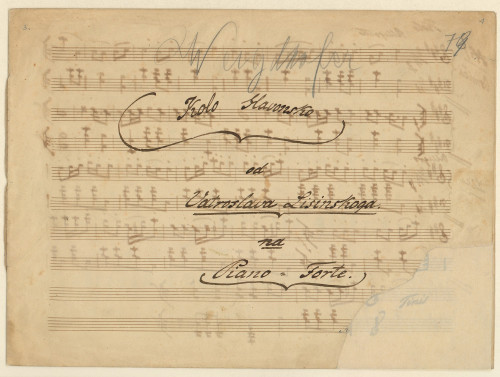 78
Kolo Slavonsko
od
Vatroslava Lisinskoga.
na
Piano-Forte.